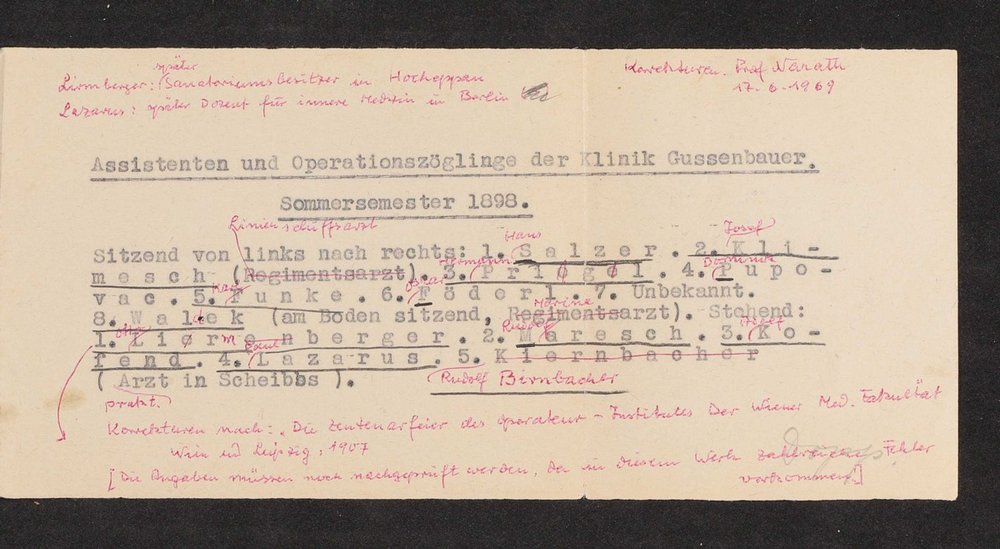 später
Lirmberger: Sanatoriumsbesitzer in Hocheppan
Korrekturen. Prof Narath
17. 6. 1969
Lazarus: später Dozent für innere Medizin in Berlin
Assistenten und Operationszöglinge der Klinik Gussenbauer.
Sommersemester 1898.
Linienschiffsarzt
Hans
Josef
Sitzend von links nach rechts: 1. Salzer. 2. Kli-
Hermann
Dominik
mesch (Regimentsarzt). 3. Priögl. 4. Pupo-
Karl
Oskar
vac. 5. Funke. 6. Föderl. 7. Unbekannt.
Marine
8. Waldek (am Boden sitzend, Regimentsarzt). Stehend:
Otto
Rudolf
Adolf
1. Liørmenberger. 2. Maresch. 3. Ko-
Paul
fend. 4. Lazarus. 5. Kiernbacher
(Arzt in Scheibbs).
Rudolf Birnbacher
prakt.
Korrekturen nach: "Die Zentenarfeier des Operateur-Institutes der Wiener Med. Fakultät
Wien und Leipzig, 1907
[Die Angaben müssen noch nachgeprüft werden, da in diesem Werk zahlreiche Fehler
vorkommen!]